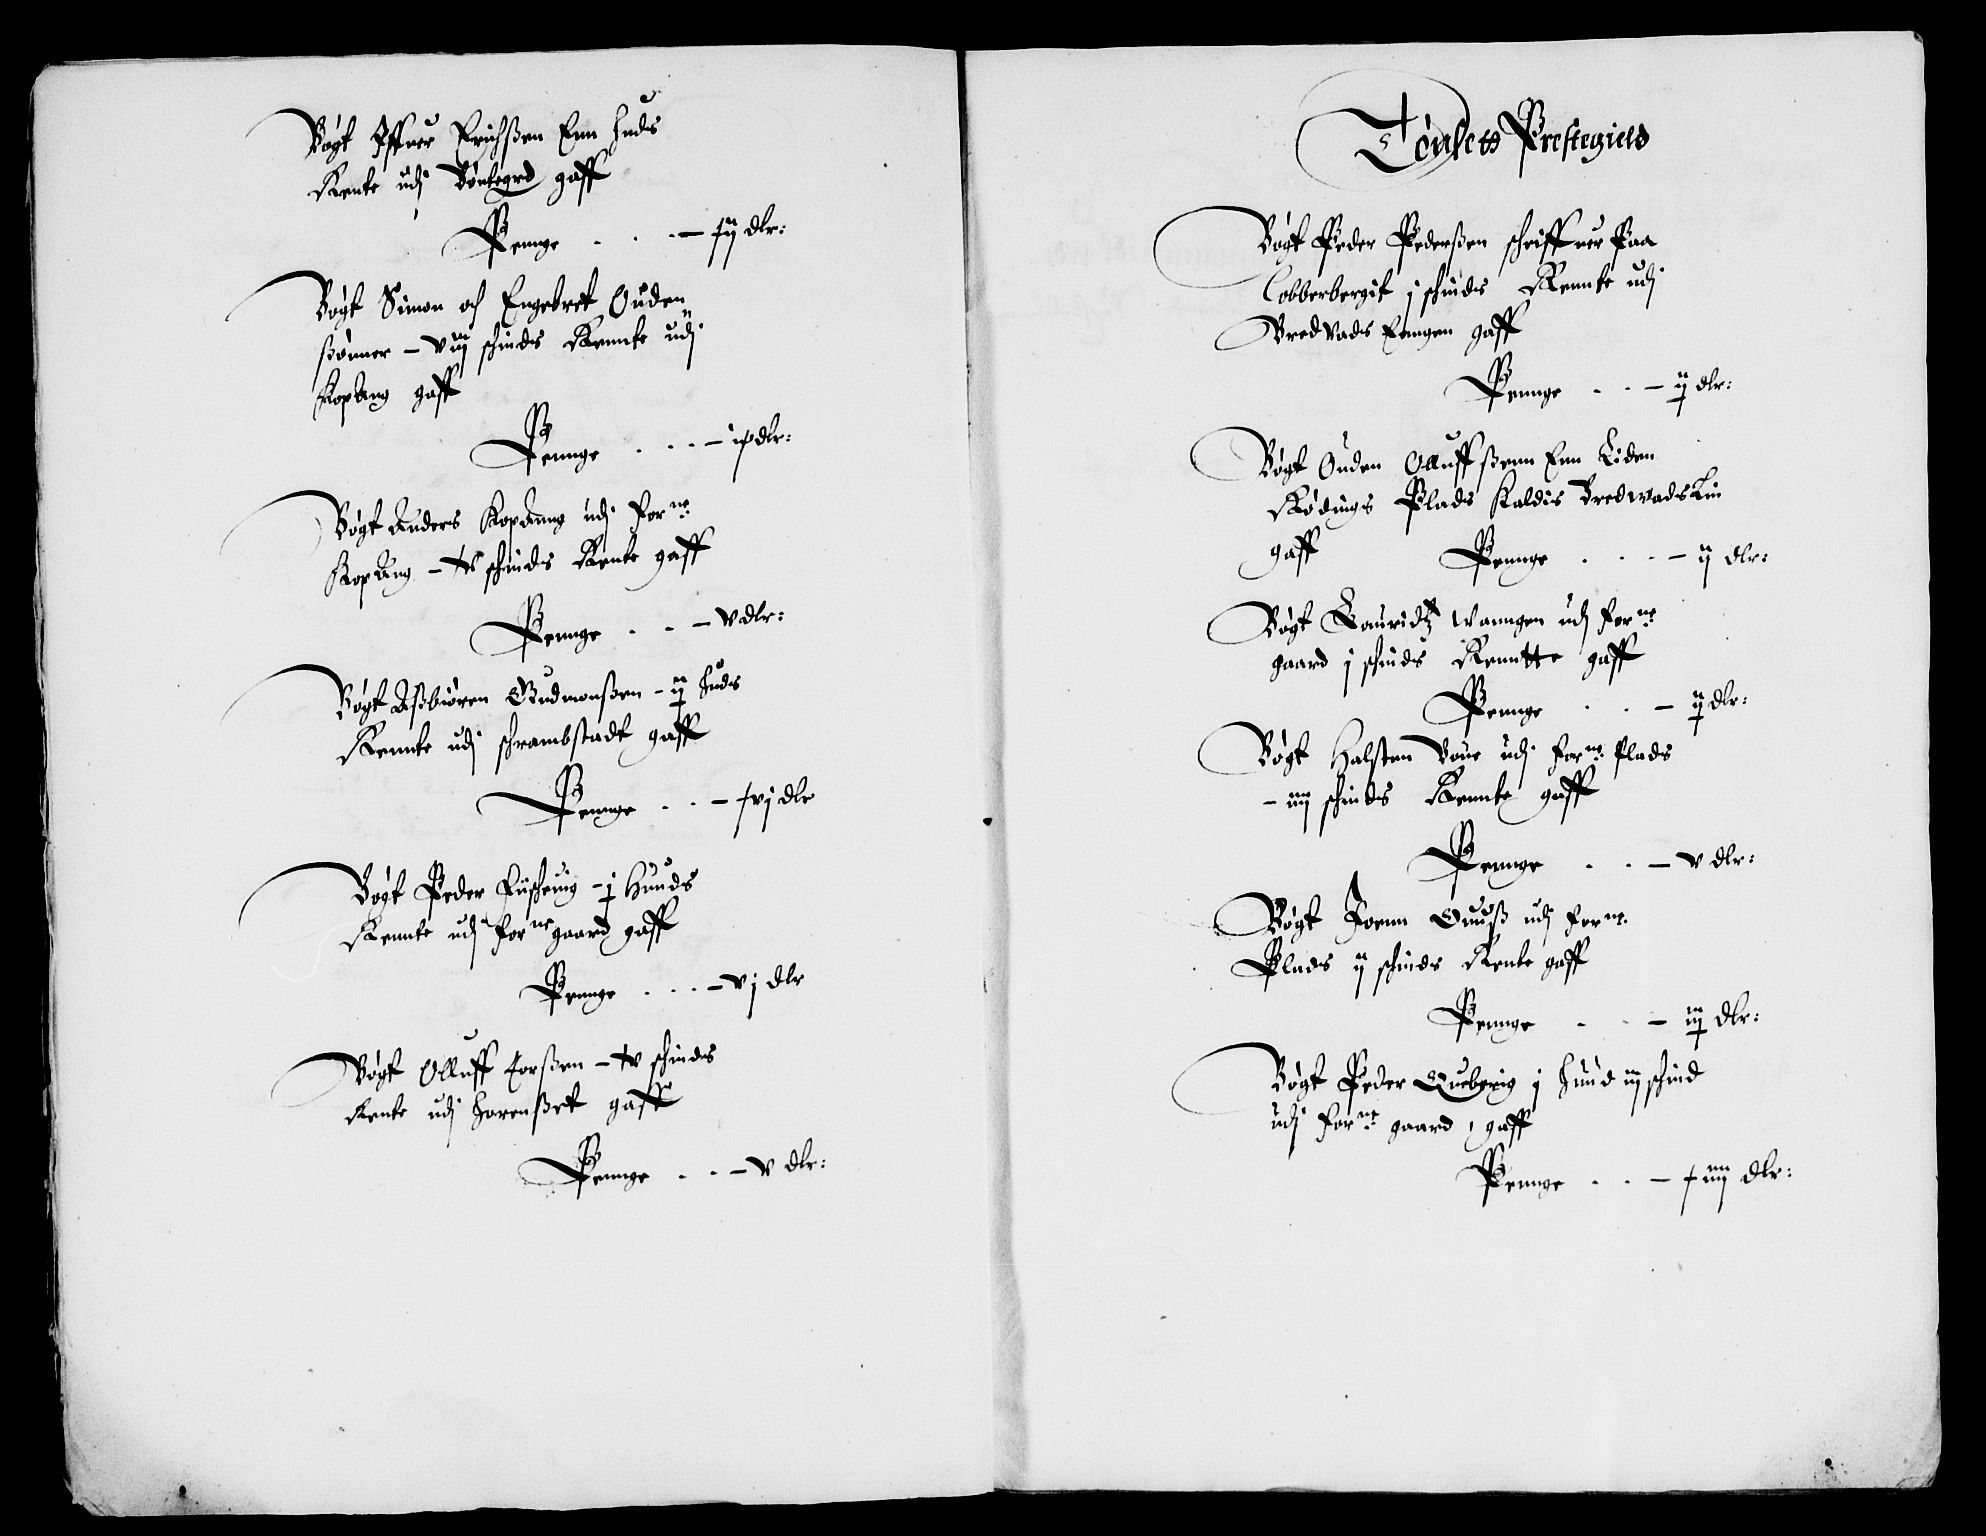 Bøgt Iffuer Erichßen Enn huds
Rente udj Böntegrd gaff
Pennge . . . – xij dlr:
Bøgt Simon och Engebret Ouden
ßønner – viij schinds Rennte udj
Kopang gaff
Pennge . . . – ix dlr:
Bøgt Anders Kopanng udj for ne:
Kopang – schinds Rente gaff
Pennge . . – v dlr:
Bøgt Aßbiören Gudmonßen – ij huds
Rennte udj schrambstadt gaff
Pennge . . – xvj dlr
Bøgt Peder – j Huuds
Rennte udj for ne gaard gaff
Pennge . . . – vj dlr
Bøgt Olluff Torßen – schinds
Rente udj horenßet gaff
Pennge . . – v dlr:
Tönsets Prestegield
Bøgt Peder Pederßen schriffuer Paa
Cobberbergit j schinds Rennte udj
Bredvads Eengen gaff
Pennge . . – ij dlr:
Bøgt Ouden Olluffßenn Enn Liden
Rødnings Plads Kaldis Bredwads Lin
gaff Pennge . . . – ij dlr:
Bøgt Lauridtz Wanngen udj for ne:
gaard j schinds Renntte gaff
Pennge . . – ij dlr:
Bøgt Halsten udj for ne: Plads
– iiij schinds Rennte gaff
Pennge . . – v dlr:
Bøgt Joenn udj for ne:
Plads ij schinds Rente gaff
Pennge . . – iij dlr:
Bøgt Peder Quebergig j huud iij schind
udj for ne: gaard, gaff
Pennge . . – xiiij dlr: